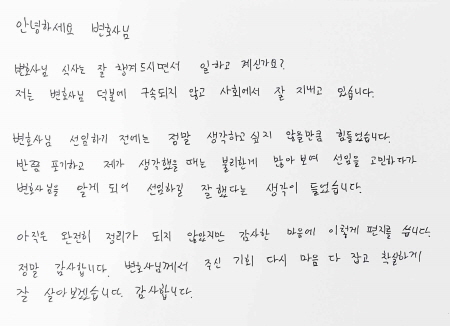 안녕하세요 변호사님
변호사님 식사는 잘 챙겨드시면서 일하고 계신가요?
저는 변호사님 덕분에 구속되지 않고 사회에서 잘 지내고 있습니다.
변호사님 선임하기 전에는 정말 생각하고 싶지 않을만큼 힘들었습니다.
반쯤 포기하고 제가 생각했을 때는 불리한게 많아 보여 선임을 고민하다가
변호사님을 알게 되어 선임하길 잘했다는 생각이 들었습니다.
아직은 완전히 정리가 되지 않았지만 감사한 마음에 이렇게 편지를 씁니다.
정말 감사합니다. 변호사님께서 주신 기회 다시 마음 다 잡고 착실하게
잘 살아보겠습니다. 감사합니다.